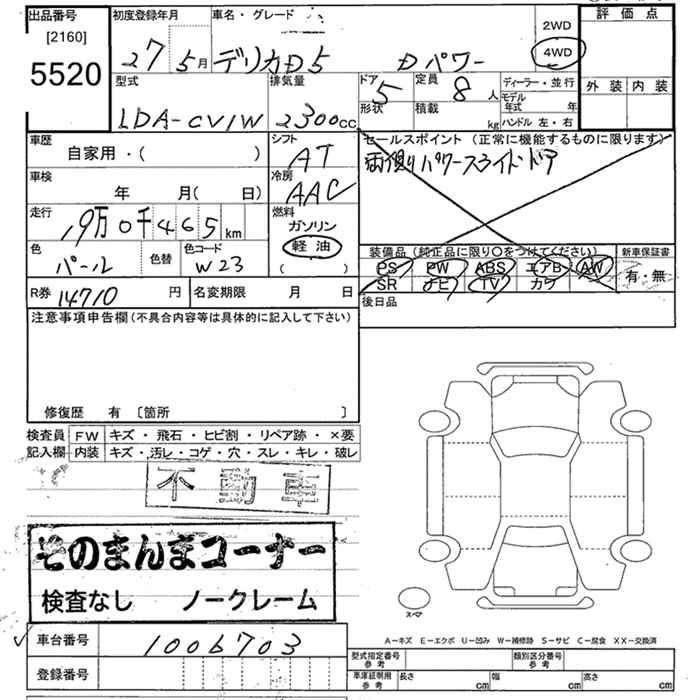 出品番号
[2160]
5520
初度登録年月
27 5月
車名・グレード
デリカD5 Dパワー
2WD
4WD
評価点
外装 内装
型式
LDA-CV1W
排気量
2300cc
ドア 5
形状
定員 8人
積載 kg
ディーラー・並行
モデル年式 年
ハンドル 左・右
車歴
自家用・( )
シフト
AT
セールスポイント (正常に機能するものに限ります)
両側パワースライドドア
車検
年 月( 日)
冷房
AAC
走行
19万0千465km
燃料
ガソリン
軽油
( )
色
パール
色替
色コード
W23
装備品 (純正品に限り○をつけてください)
PS PW ABS エアB AW
SR ナビ TV カワ
新車保証書
有・無
R券 14710 円
名変期限 月 日
後日品
注意事項申告欄(不具合内容等は具体的に記入して下さい)
修復歴 有 [箇所 ]
検査員
記入欄
FW キズ・飛石・ヒビ割・リペア跡・×要
内装 キズ・汚レ・コゲ・穴・スレ・キレ・破レ
不動車
そのまんまコーナー
検査なし ノークレーム
スペア
A−キズ E−エクボ U−凹み W−補修跡 S−サビ C−腐食 XX−交換済
車台番号
1006703
登録番号
型式指定番号
参考
類別区分番号
参考
車庫証明用
参考
長さ cm
幅 cm
高さ cm